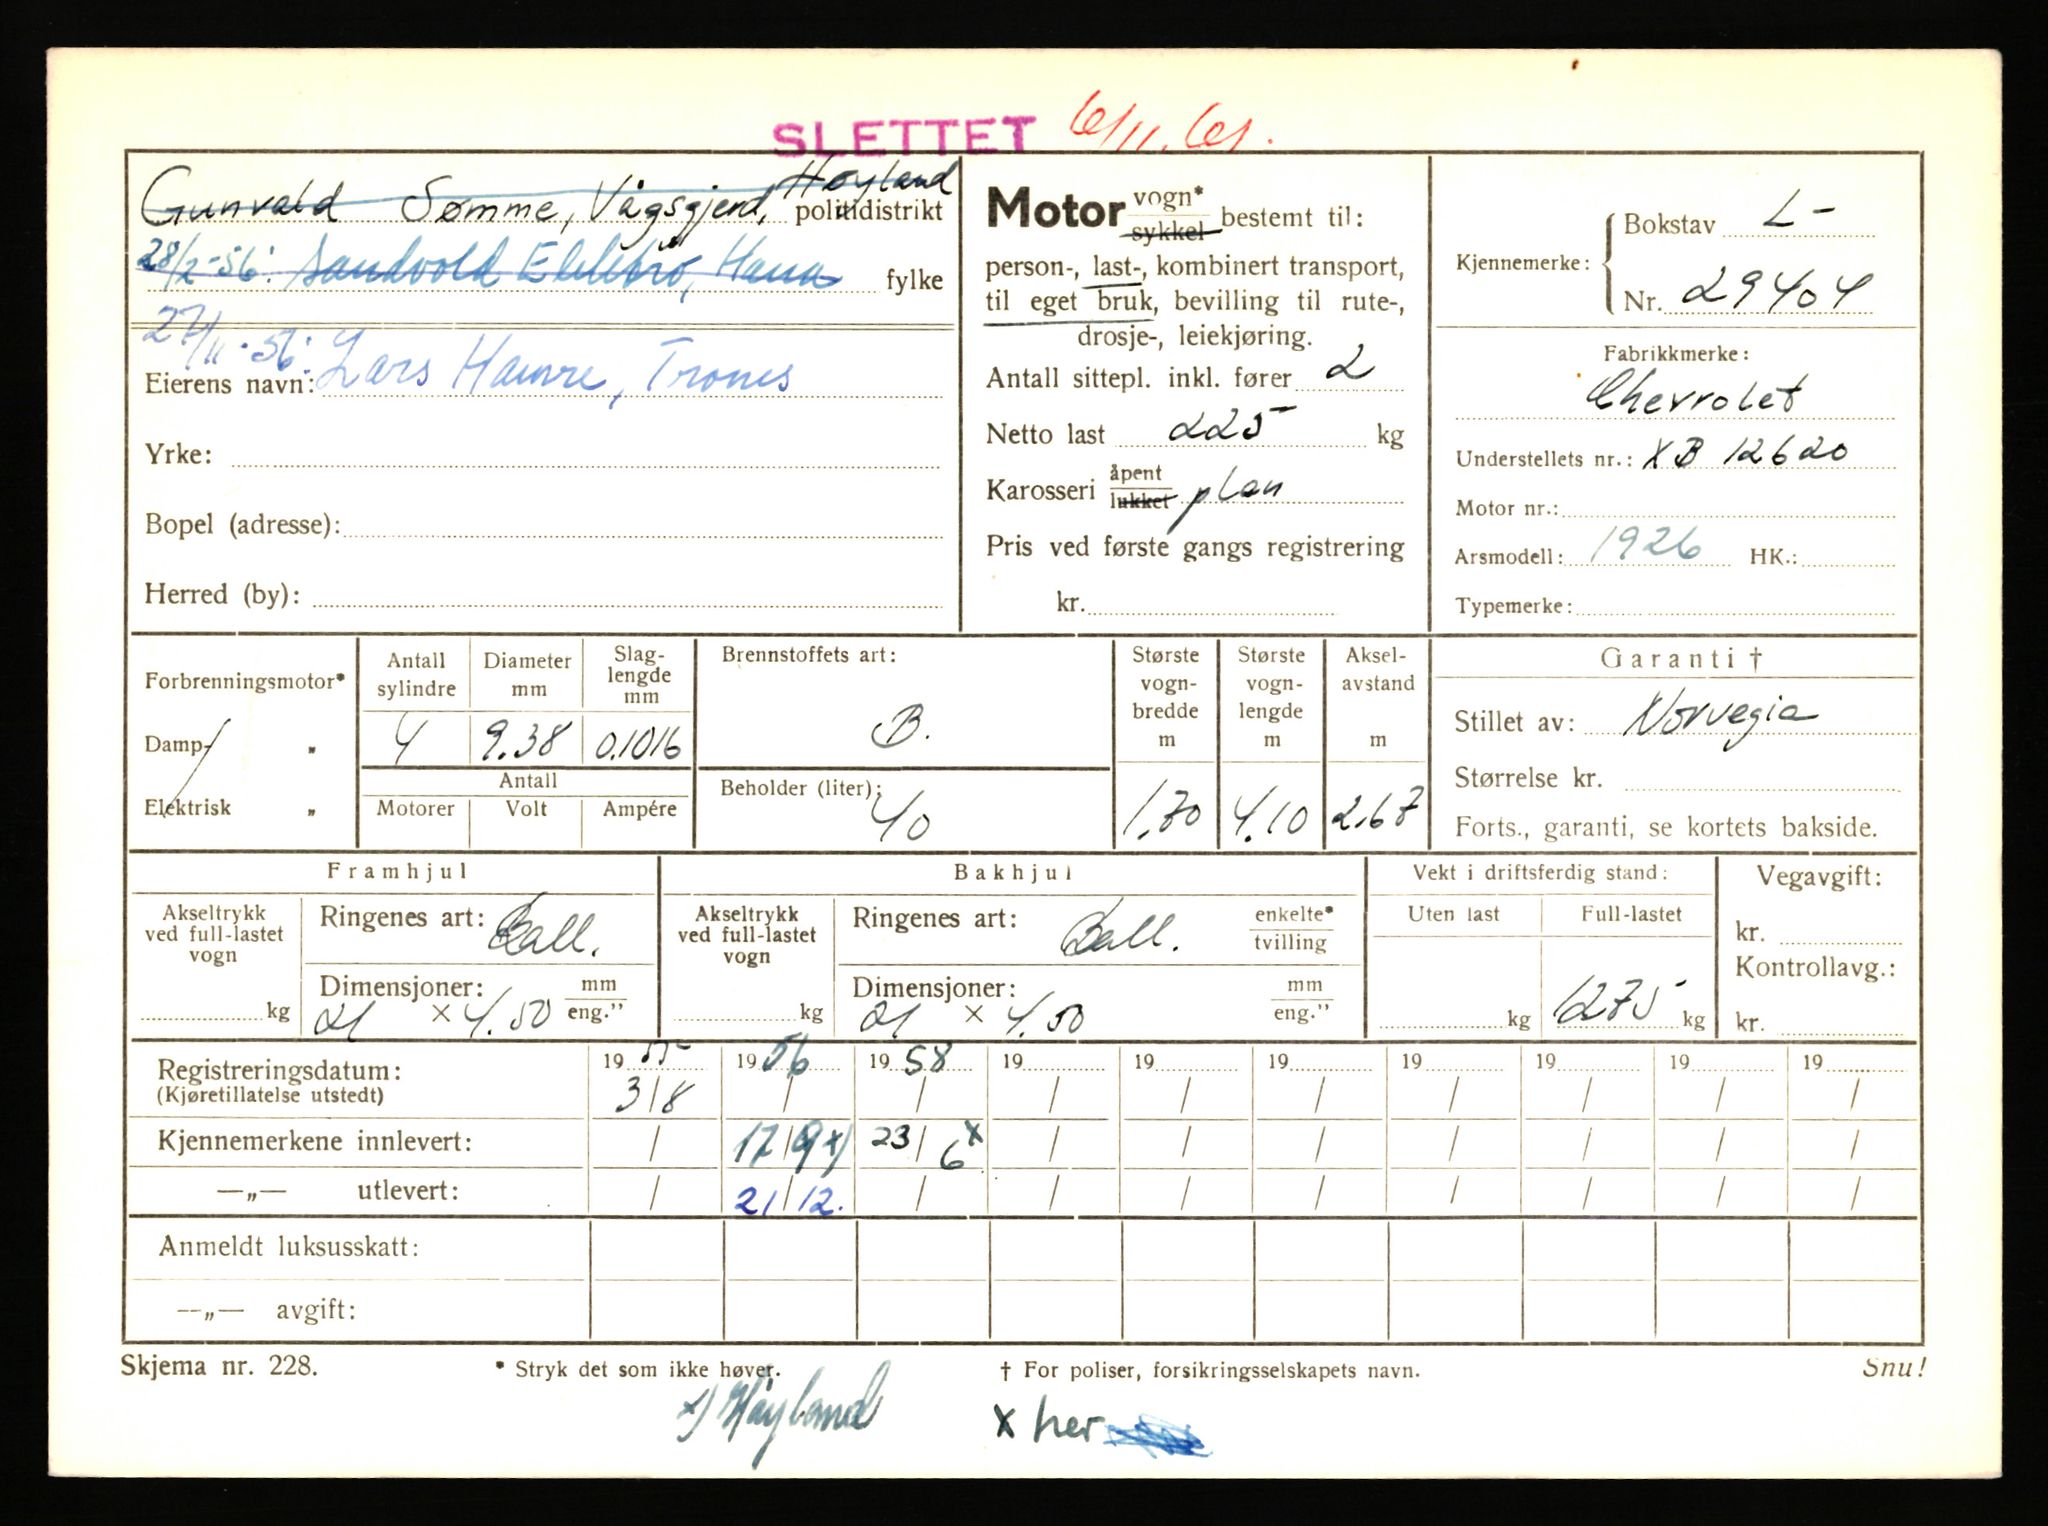 SLETTET 6/11.61.
Gunvald Sømme, Vågsgjerd, Høyland politidistrikt
28/2-56: Sandvold Ellebrø, Hana fylke
27/11-56:
Eierens navn: Lars Hamre, Trones
Yrke:
Bopel (adresse):
Herred (by):
Motor vogn* sykkel bestemt til:
person-, last-, kombinert transport,
til eget bruk, bevilling til rute-,
drosje-, leiekjøring.
Antall sittepl. inkl. fører 2
Netto last 225 kg
Karosseri åpent lukket plan
Pris ved første gangs registrering
kr.
Kjennemerke: Bokstav L-
Nr. 29404
Fabrikkmerke:
Chevrolet
Understellets nr.: XB 12620
Motor nr.:
Arsmodell: 1926 HK.:
Typemerke:
Forbrenningsmotor*
Damp- "
Elektrisk "
Antall sylindre 4
Diameter mm 9.38
Slag-lengde mm 0.1016
Antall
Motorer Volt Ampére
Brennstoffets art:
B.
Beholder (liter): 40
Største vogn-bredde m 1,70
Største vogn-lengde m 4.10
Aksel-avstand m 2,67
Garanti †
Stillet av: Norvegia
Størrelse kr.
Forts., garanti, se kortets bakside.
Framhjul
Akseltrykk ved full-lastet vogn kg
Ringenes art: Ball.
Dimensjoner: mm eng."
21 × 4.50
Bakhjul
Akseltrykk ved full-lastet vogn kg
Ringenes art: Ball. enkelte* tvilling
Dimensjoner: mm eng."
21 × 4.50
Vekt i driftsferdig stand:
Uten last Full-lastet
kg 1275 kg
Vegavgift:
kr.
Kontrollavg.:
kr.
Registreringsdatum: 1955 1956 1958 19 19 19 19 19 19 19
(Kjøretillatelse utstedt) 3/8 / / / / / / / / /
Kjennemerkene innlevert: / 17/9 x) 23/6 x / / / / / / /
—„— utlevert: / 21/12. / / / / / / / /
Anmeldt luksusskatt:
—„— avgift:
Skjema nr. 228. * Stryk det som ikke høver. † For poliser, forsikringsselskapets navn. Snu!
x) Høyland x her